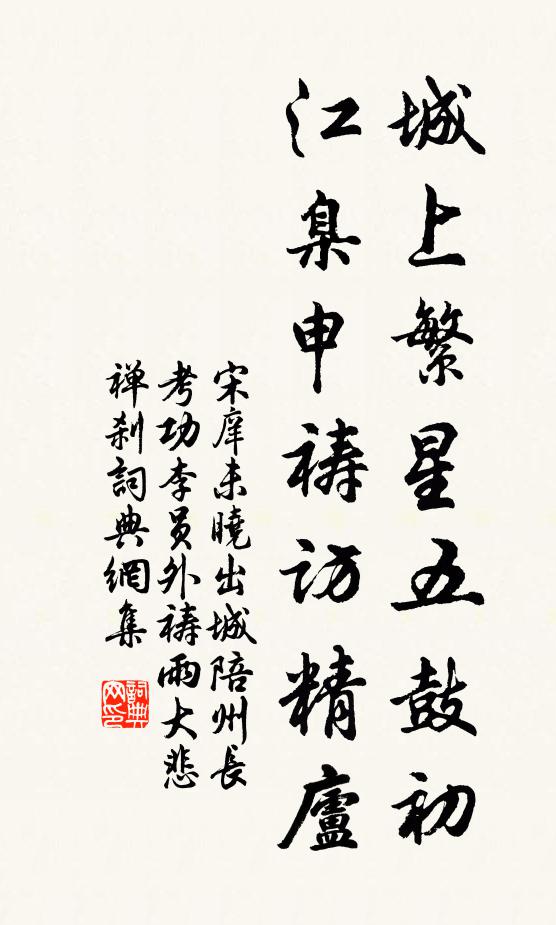 城上繁星五鼓初
江臯申禱访精廬
宋庠未曉出城陪州長
考功李员外禱雨大悲
禅刹詞典網集
詞典网印